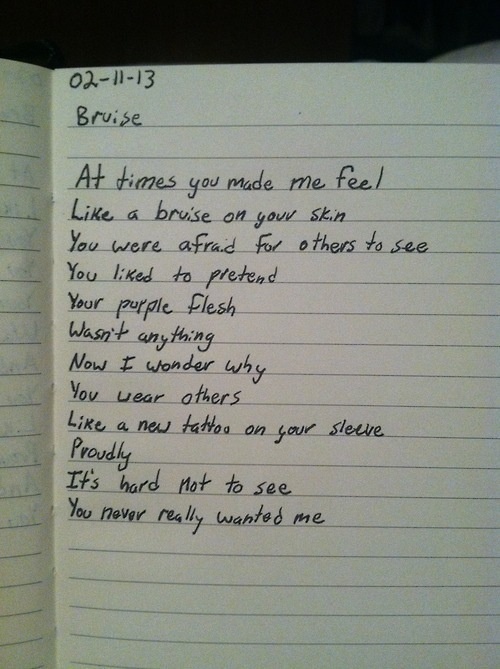 02-11-13
Bruise
At times you made me feel
Like a bruise on your skin
You were afraid for others to see
You liked to pretend
Your purple flesh
Wasn't anything
Now I wonder why
You wear others
Like a new tattoo on your sleeve
Proudly
It's hard not to see
You never really wanted me